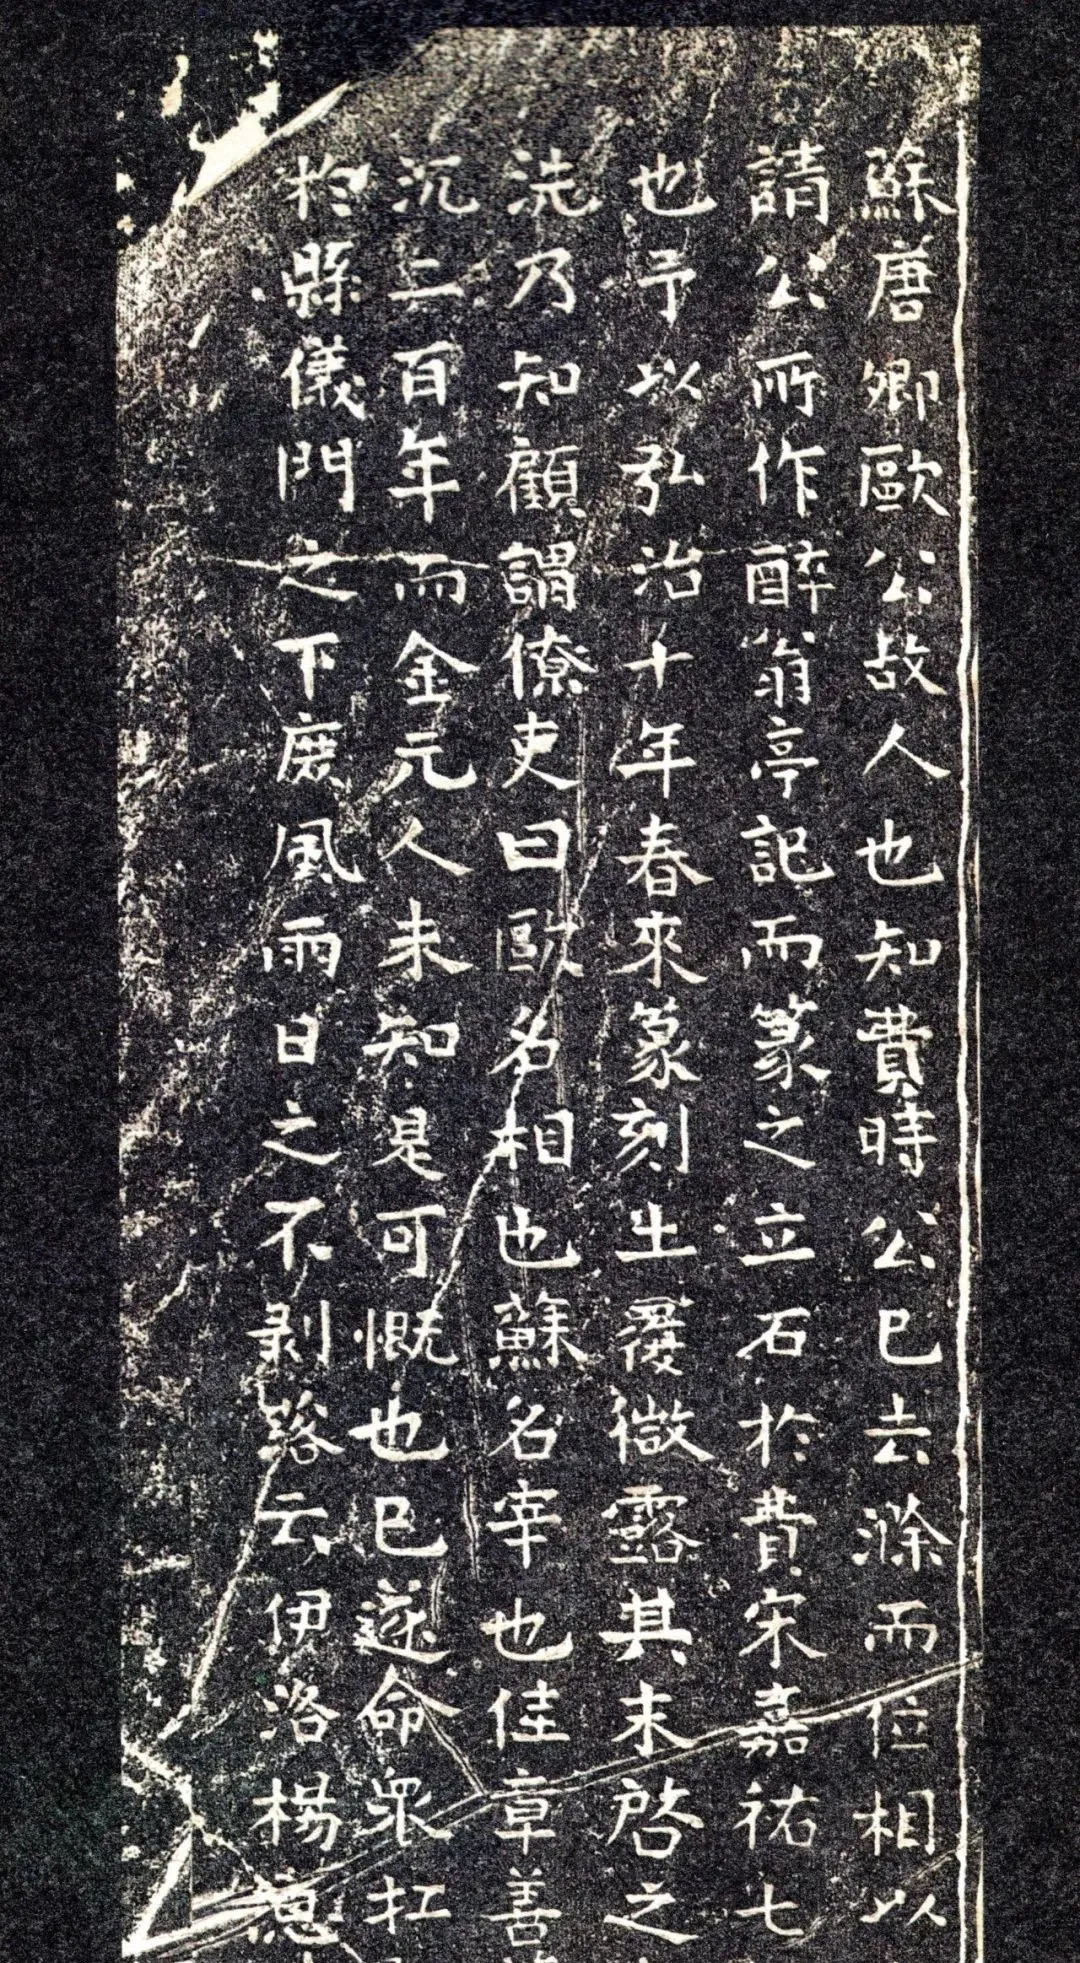 蘇唐卿歐公故人也知費時公已去滁而位相以
請公所作醉翁亭記而篆之立石於費宋嘉祐七
也予以弘治十年春來篆刻生覆微露其末啓之
洗乃知顧謂僚吏曰歐名相也蘇名宰也佳章善
沉二百年而金元人未知是可慨也已遂命眾扛
於縣儀門之下庶風雨日之不剥落云伊洛楊